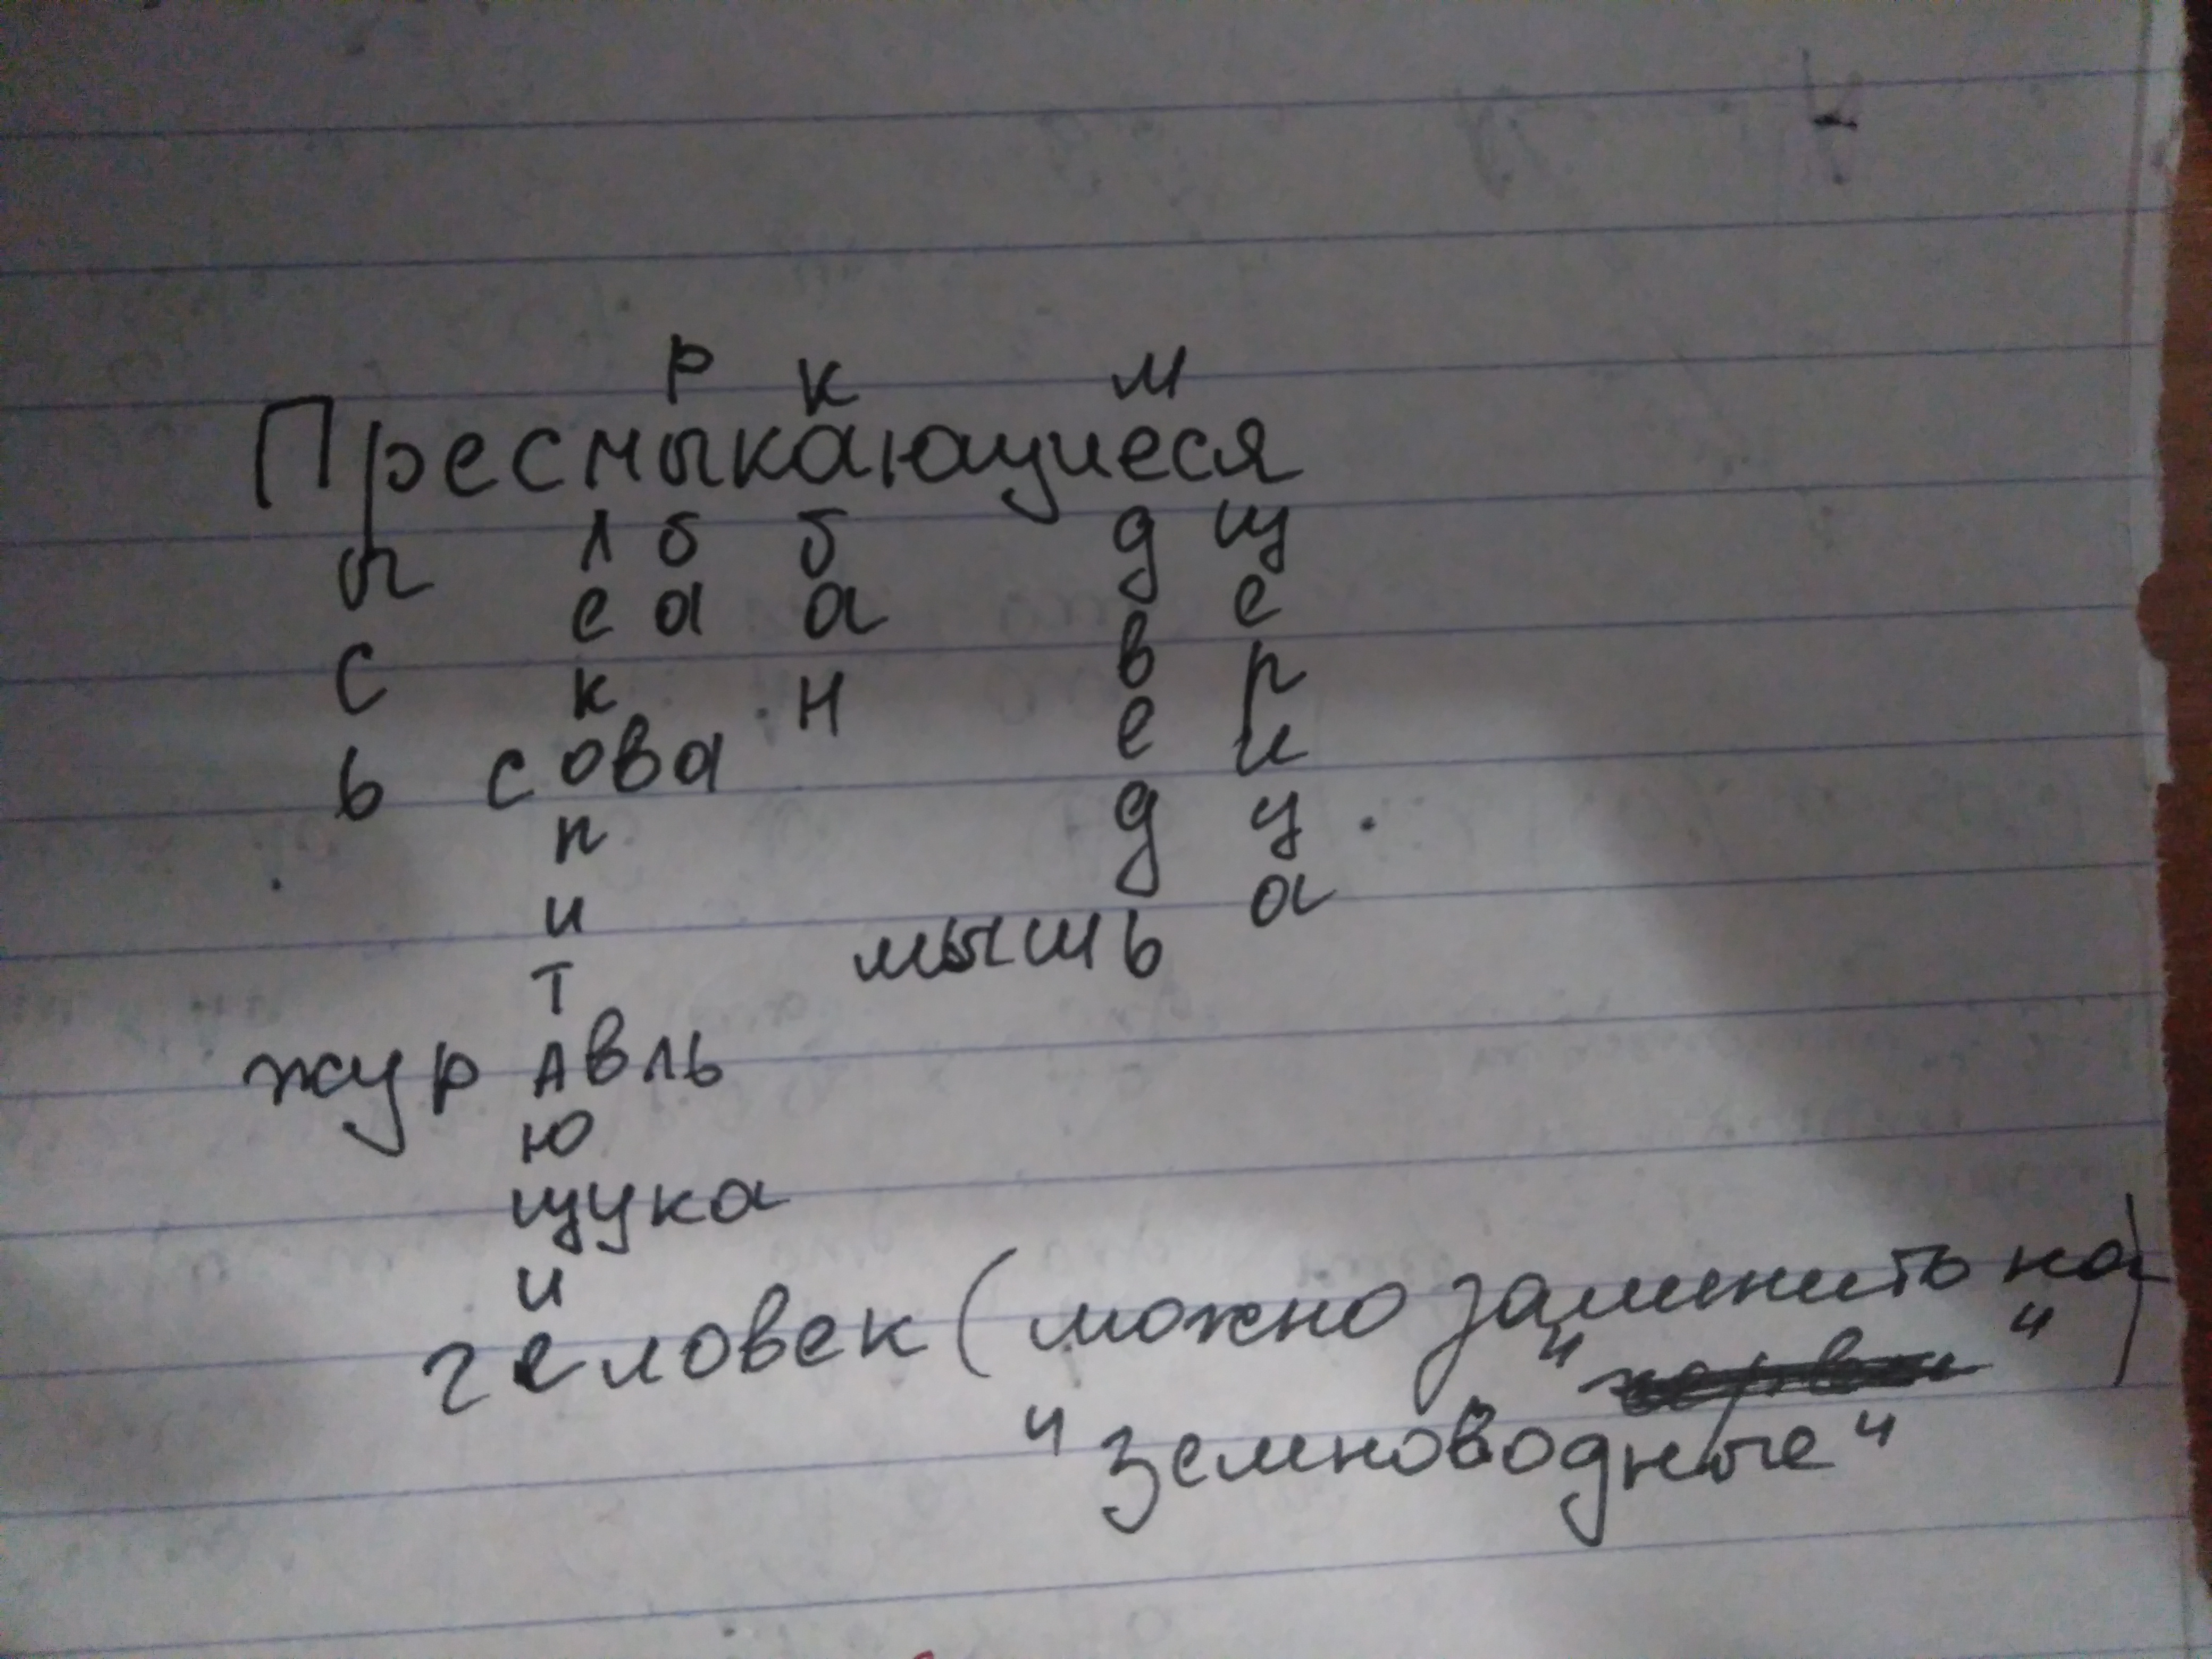 р к м
Пресмыкающиеся
л б б д щ
ы е а а в е
с к н е р
ь сова д и
п ц
и а
т мышь
жур Авль
ю
щука
и
человек (можно заминить на)
" "
"земноводные"